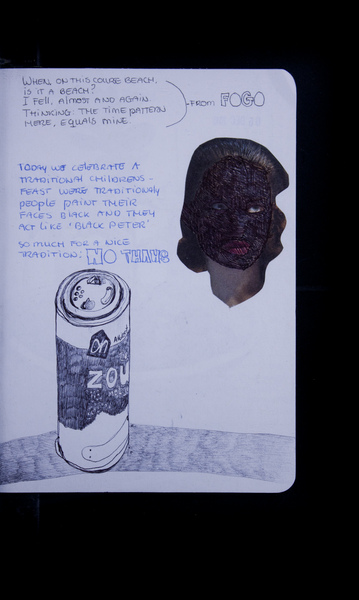 WHEN, ON THIS COURSE BEACH,
IS IT A BEACH?
I FELL, ALMOST AND AGAIN
THINKING: THE TIME PATTERN
HERE, EQUALS MINE.
FROM FOGO
TODAY WE CELEBRATE A
TRADITIONAL CHILDRENS-
FEAST WERE TRADITIONALY
PEOPLE PAINT THEIR
FACES BLACK AND THEY
ACT LIKE 'BLACK PETER'
SO MUCH FOR A NICE
TRADITION; NO THANKS
ZOU